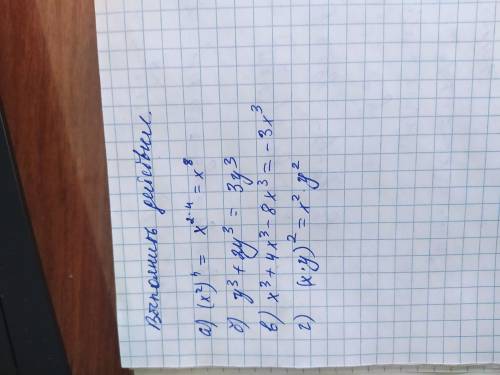 Выполнить действия.
а) (x²)⁴ = x²·⁴ = x⁸
б) y³ + 2y³ = 3y³
в) x³ + 4x³ - 8x³ = -3x³
г) (x·y)² = x²·y²